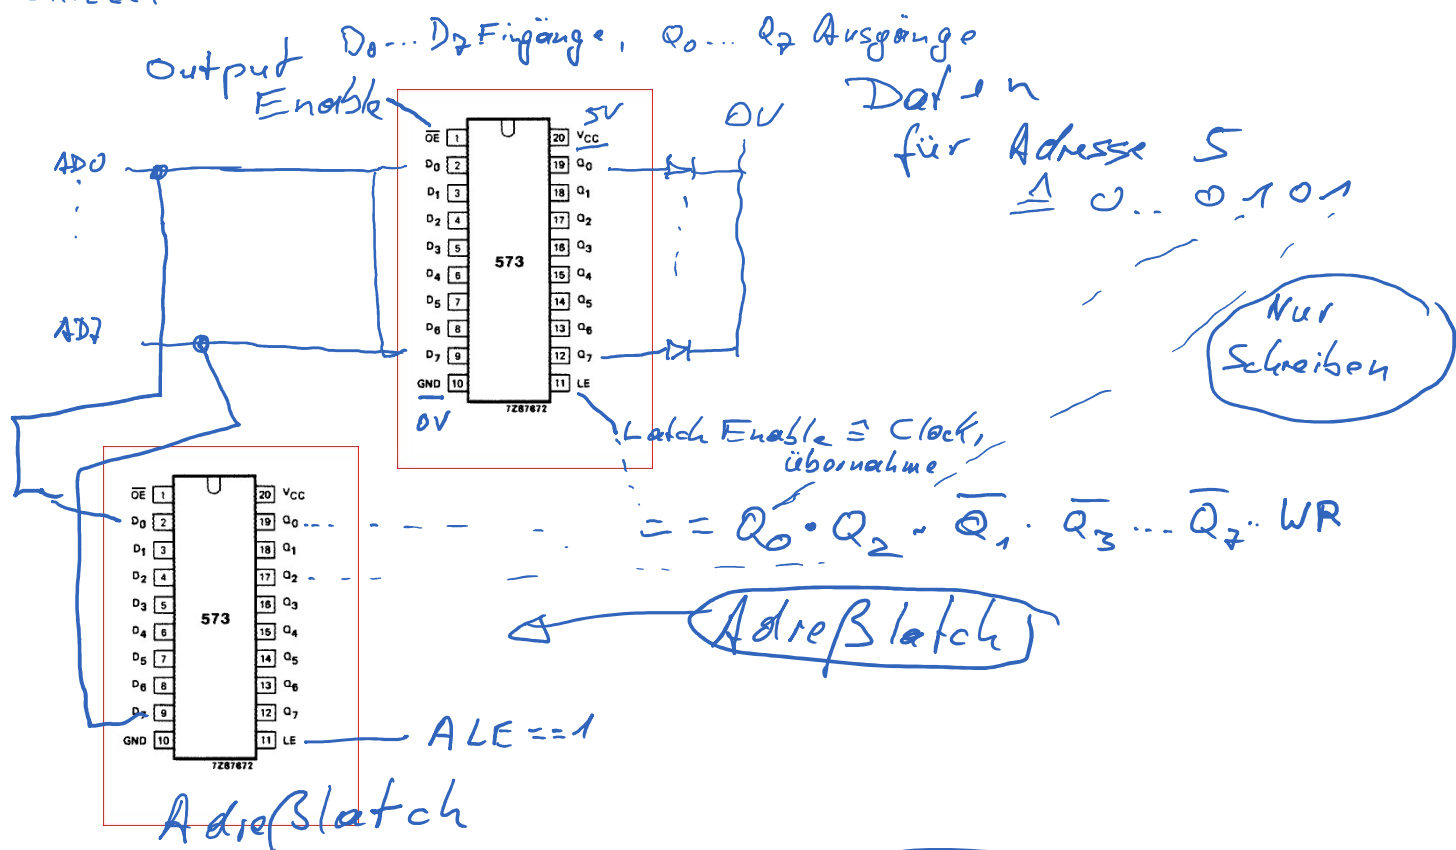 D0... D7 Eingänge, Q0... Q7 Ausgänge
Output
Enable
Daten
für Adresse 5
≙ 0.. 0101
5V
0V
AD0
AD7
OE 1
D0 2
D1 3
D2 4
D3 5
D4 6
D5 7
D6 8
D7 9
GND 10
573
20 VCC
19 Q0
18 Q1
17 Q2
16 Q3
15 Q4
14 Q5
13 Q6
12 Q7
11 LE
7Z87672
0V
Nur
Schreiben
Latch Enable ≙ Clock,
übernahme
== Q0 • Q2 • Q̅1 • Q̅3 ... Q̅7 • WR
Adreßlatch
OE 1
D0 2
D1 3
D2 4
D3 5
D4 6
D5 7
D6 8
D7 9
GND 10
573
20 VCC
19 Q0
18 Q1
17 Q2
16 Q3
15 Q4
14 Q5
13 Q6
12 Q7
11 LE
7Z87672
ALE == 1
Adreßlatch